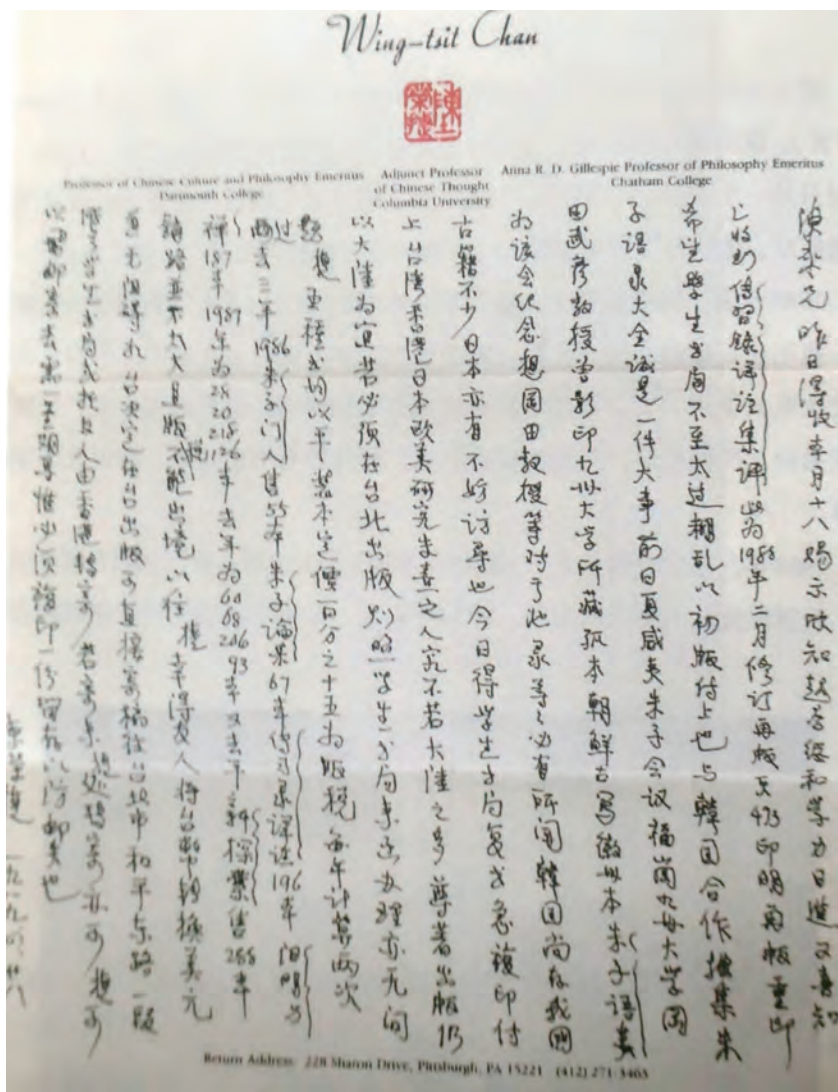 Wing-tsit Chan
陳榮捷
Professor of Chinese Culture and Philosophy Emeritus
Dartmouth College
Adjunct Professor
of Chinese Thought
Columbia University
Anna R. D. Gillespie Professor of Philosophy Emeritus
Chatham College
陳来先 昨日得收本月十八賜示欣知起居绥和学力日進又喜知
已收到傳習錄详註集评此为1988年二月修订再版頁493印明再版重印
希生學生书局不至太过糊乱以初版付上也与韓国合作搜集朱
子语录大全诚是一件大事前日夏威夷朱子会议福岡九州大学岡
田武彦教授曾影印九州大学所藏孤本朝鲜古寫徽州本朱子语类
为该会纪念想岡田教授等对于此录等必有所闻韓国尚存我國
古籍不少日本亦有不妨访尋也今日得学生书局复书急複印付
上台湾香港日本欧美研究朱熹之人究不若大陸之多尊著出版仍
以大陸为宜若必须在台北出版则照学生书局来函办理亦无问
题 捷五種书均以平装本定價百分之十五为版税每年计算两次
过去三年1986朱子门人售 本朱子論集67本传习录详註196本阳明与
禅187本1987年为28 20 218 126本去年为64 68 246 93本又去年 新探索售288本
銷路並不太大且版 不能出境以往捷幸得友人将台幣转换美元
出版可直接寄稿往台北市和平东路一段
学生书局或托友人由香港转寄 若寄来捷处转寄亦可 捷可
以 邮寄去 必须複印一份留存以防邮失也
陳榮捷 一九八九
Return Address: 228 Sharon Drive, Pittsburgh, PA 15221 (412) 271-3465